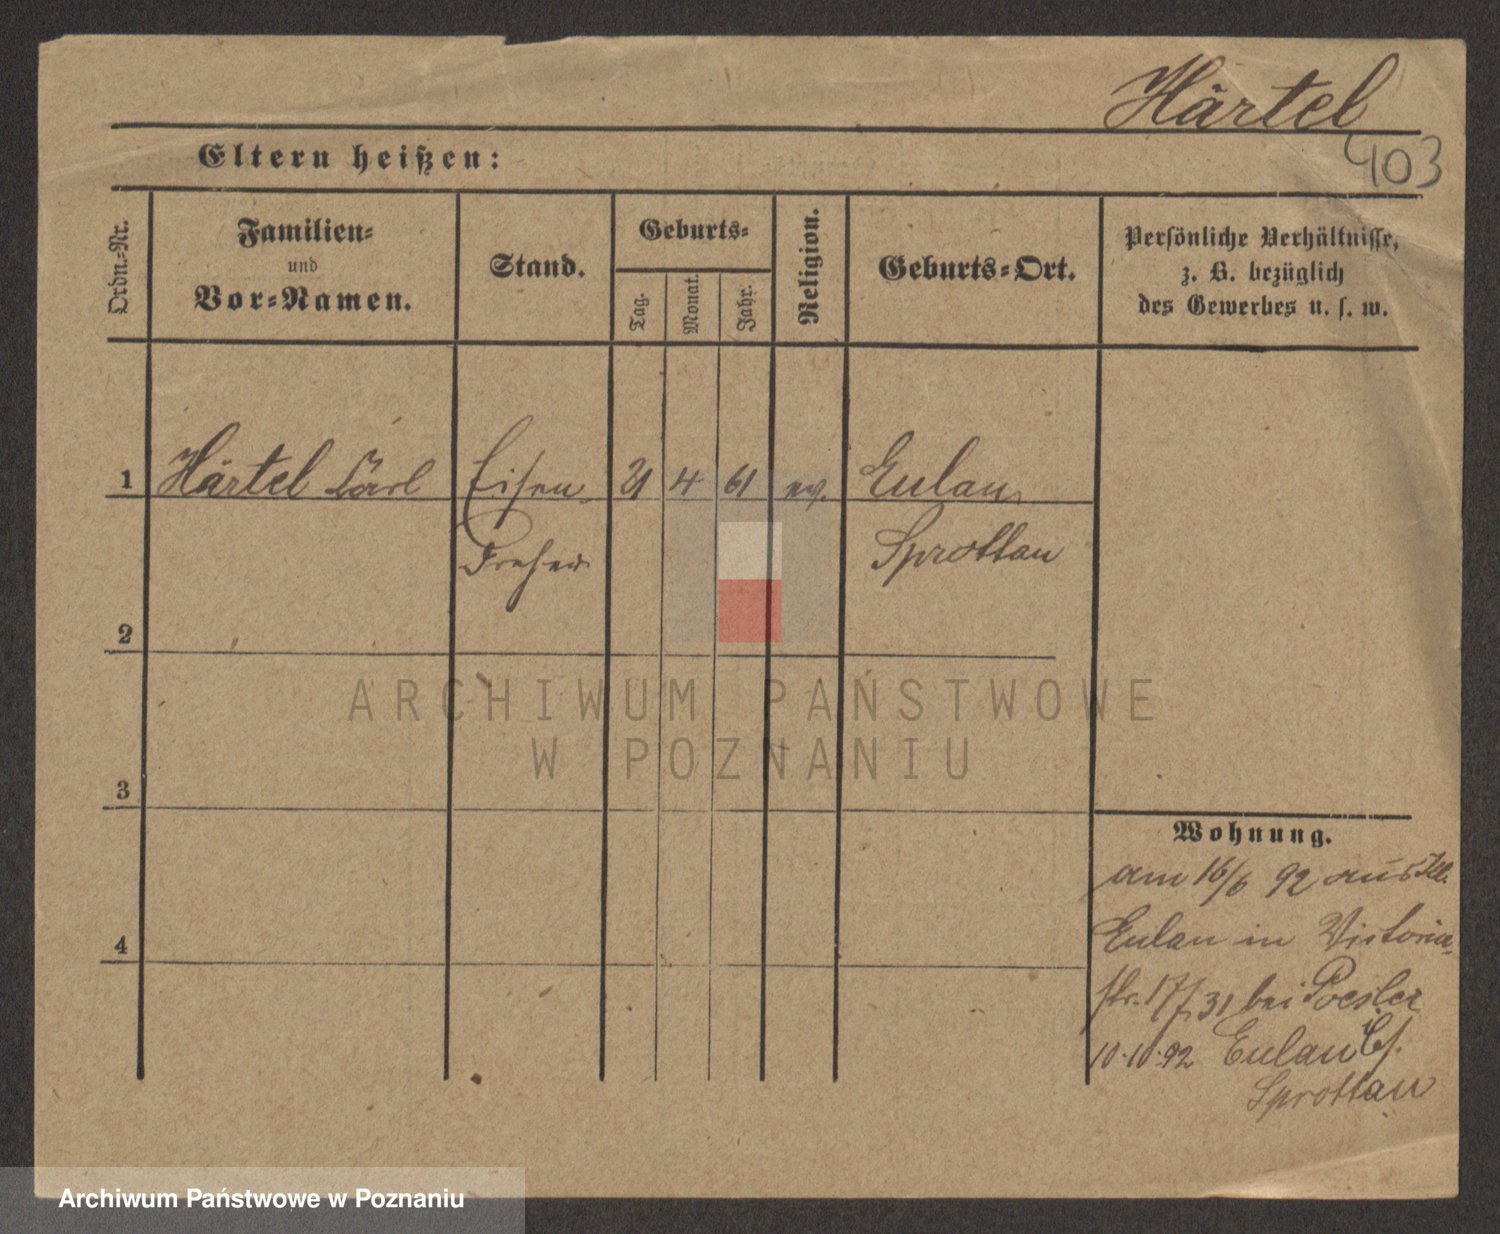 Härtel
403
Eltern heißen:
Ordn.-Nr.
Familien-
und
Vor-Namen.
Stand.
Geburts-
Tag.
Monat.
Jahr.
Religion.
Geburts-Ort.
Persönliche Verhältnisse,
z. B. bezüglich
des Gewerbes u. s. w.
1 Härtel Carl Eisen- 21 4 61 ev. Eulau
Dreher Sprottau
2
ARCHIWUM PAŃSTWOWE
W POZNANIU
3
Wohnung.
am 16/6 92 aus
Eulau in Victoria-
4
str. 17/31 bei Poesler
10.10.92 Eulau
Sprottau
Archiwum Państwowe w Poznaniu